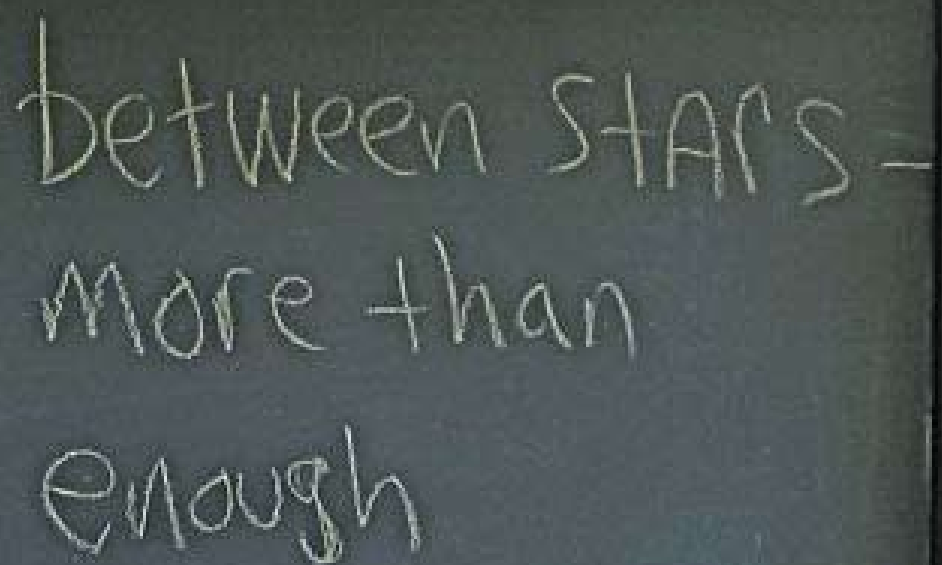 between stArs -
more than
enough